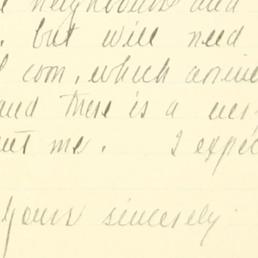 neighbours and
, but will need
com, which arrive
and there is a ver
out me. I expec
Yours sincerely